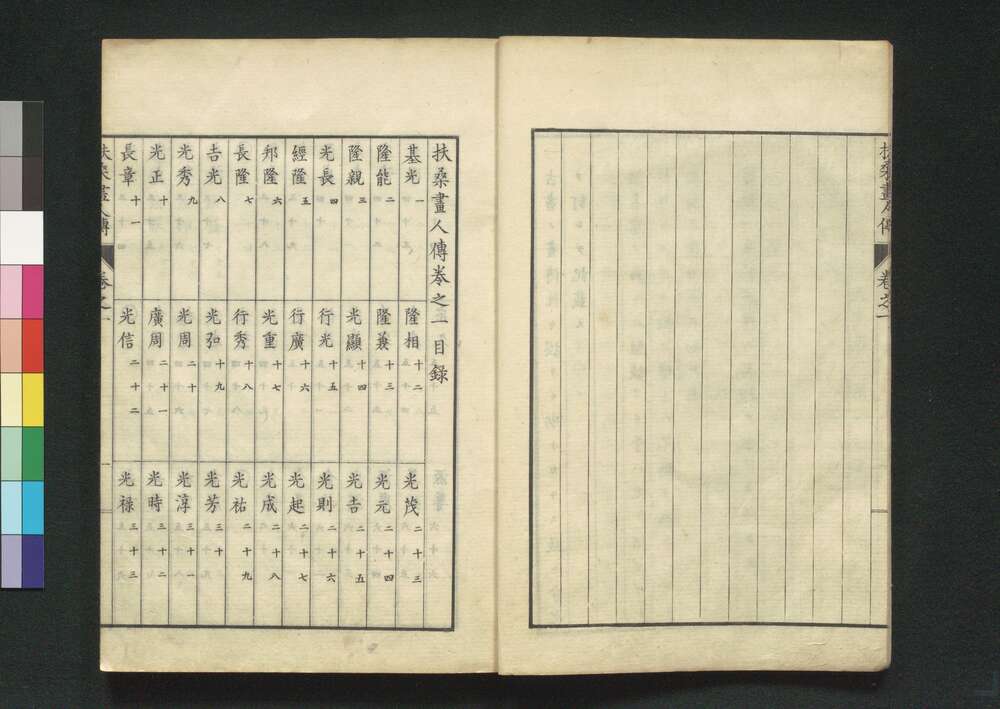 扶桑畫人傳
卷之一
扶桑畫人傳卷之一目録
基光 一
隆能 二
隆親 三
光長 四
經隆 五
邦隆 六
長隆 七
吉光 八
光秀 九
光正 十
長章 十一
隆相 十二
隆兼 十三
光顯 十四
行光 十五
行廣 十六
光重 十七
行秀 十八
光弘 十九
光周 二十
廣周 二十一
光信 二十二
光茂 二十三
光元 二十四
光吉 二十五
光則 二十六
光起 二十七
光成 二十八
光祐 二十九
光芳 三十
光淳 三十一
光時 三十二
光祿 三十三
扶桑畫人傳
卷之一